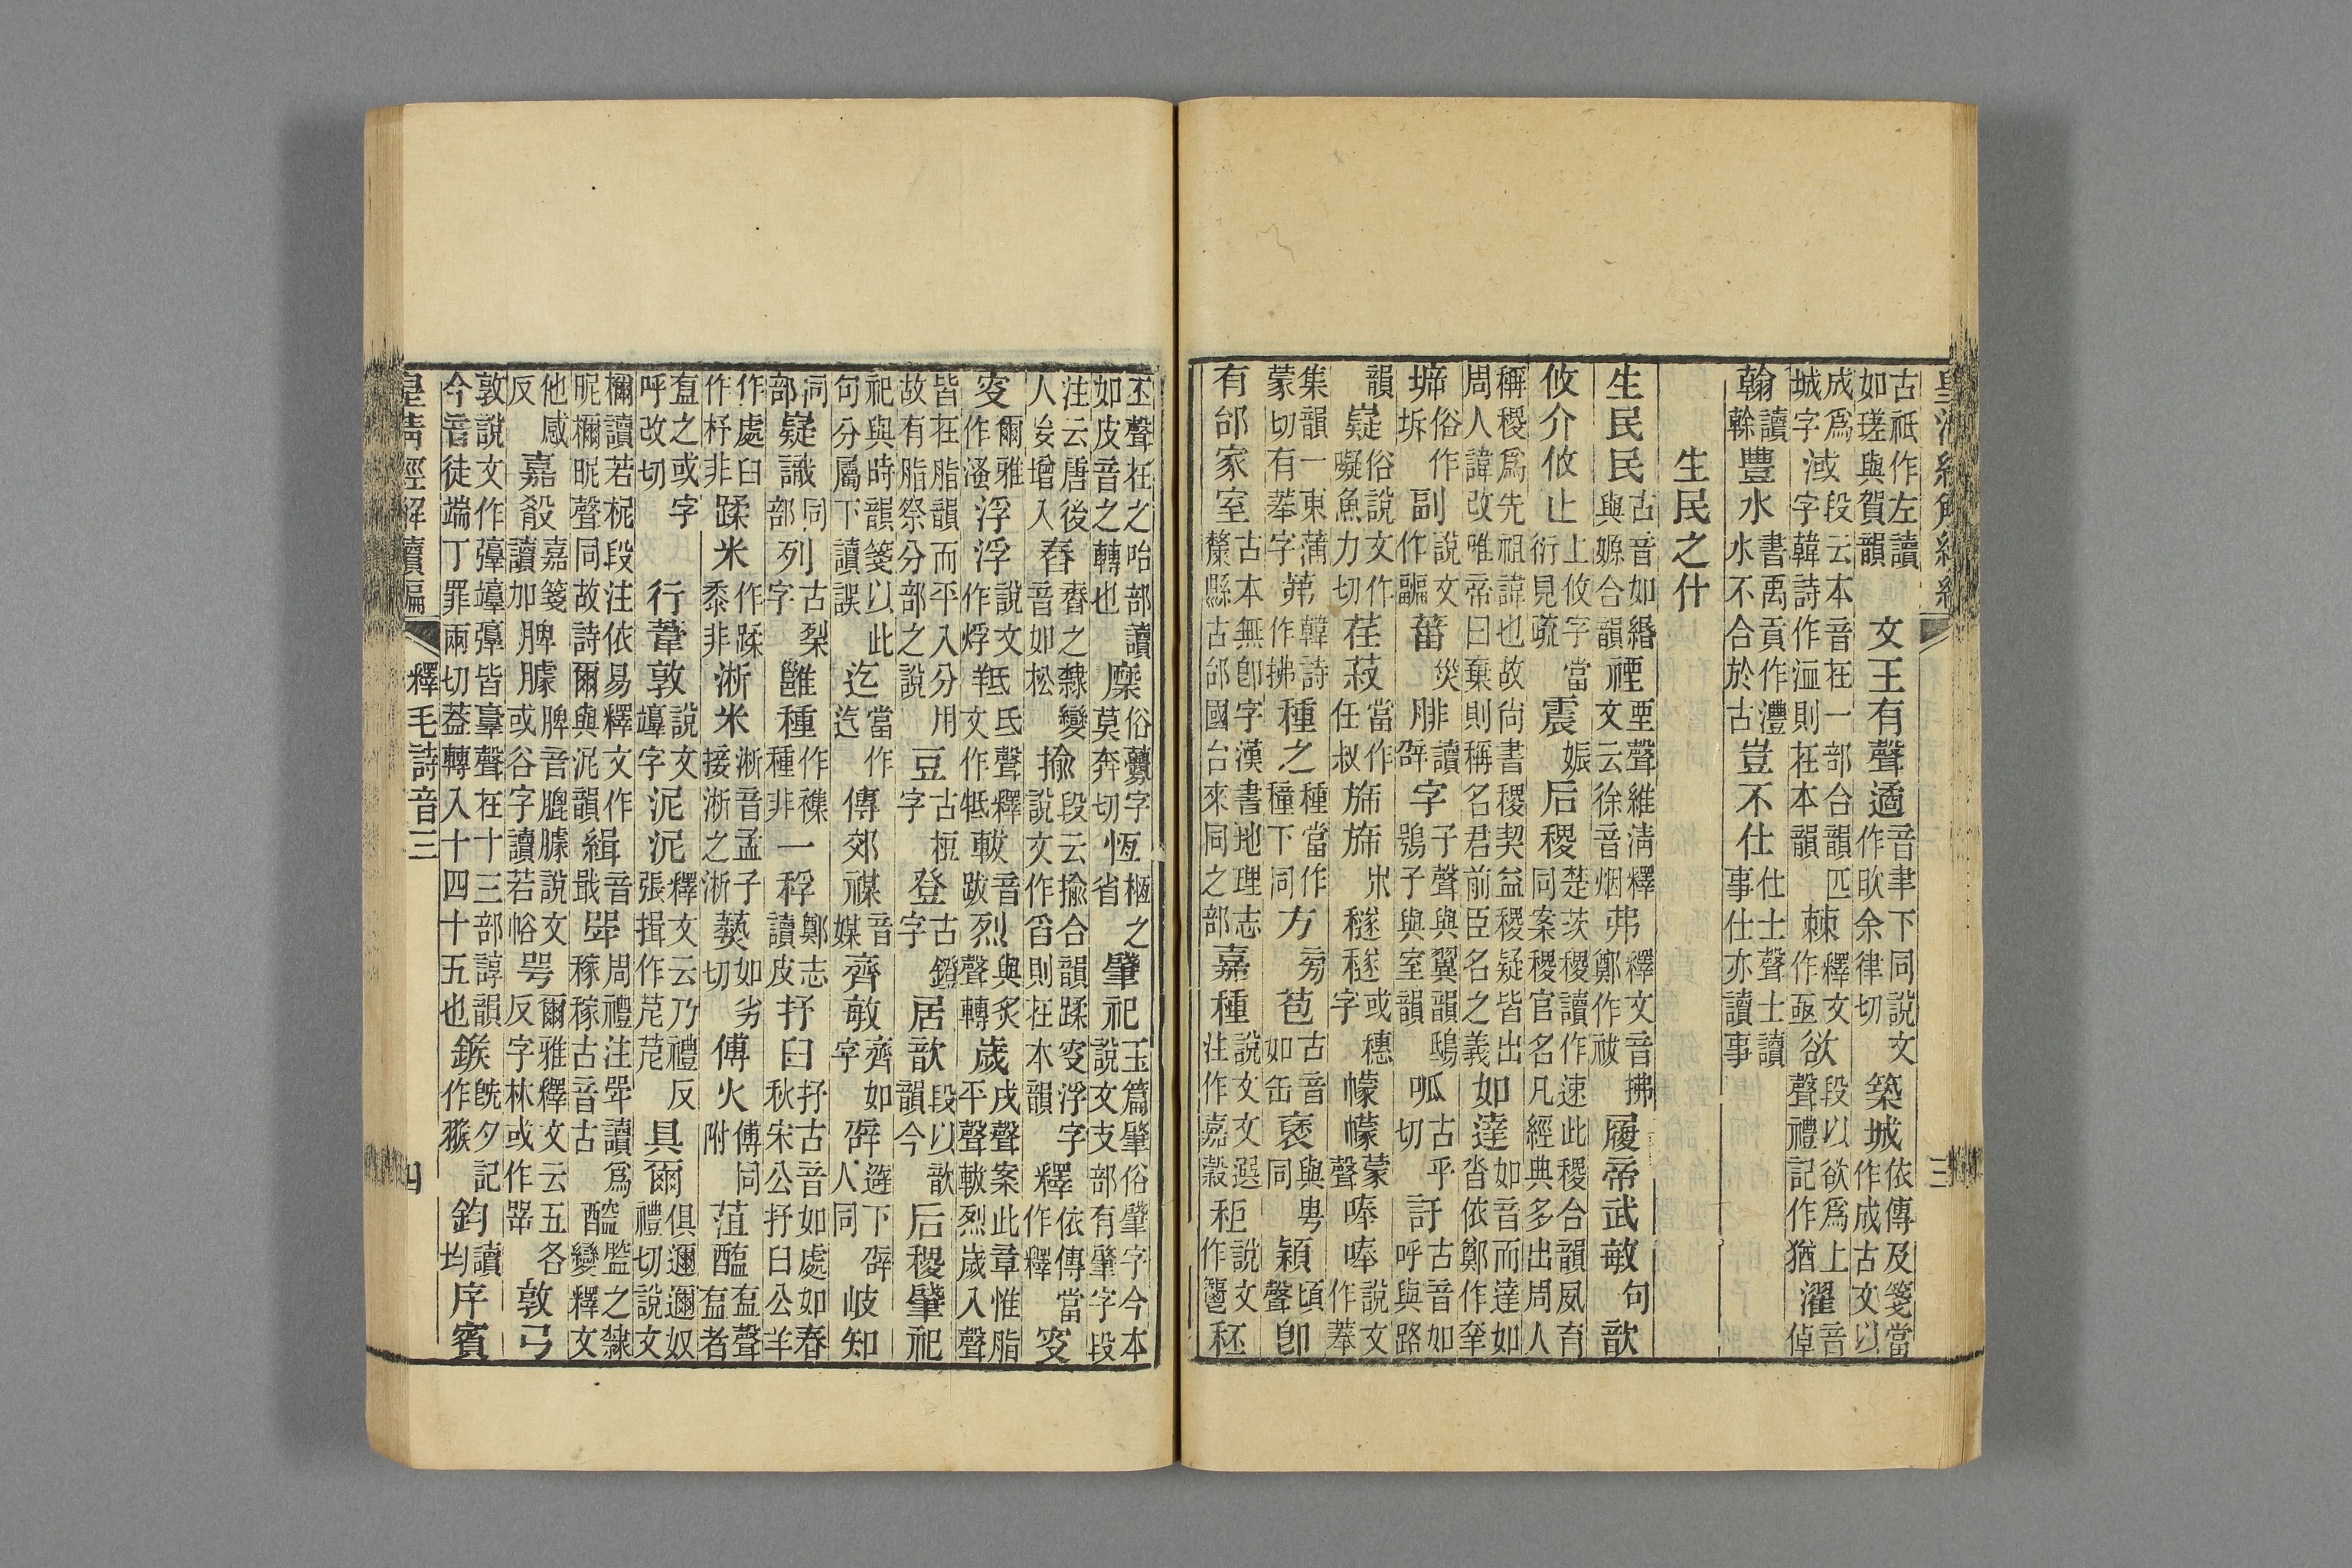 皇清經解續編 三
古祇作左讀如瑳與賀韻 文王有聲遹音聿下同說文作欥余律切築城依傳及箋當作成古文以
成爲城字淢段云本音在一部合韻匹字韓詩作洫則在本韻棘釋文作亟欲段以欲爲上聲禮記作猶濯音倬
翰讀榦豐水書禹貢作澧水不合於古豈不仕仕士聲士讀事仕亦讀事
生民之什
生民民古音如緡與嫄合韻禋垔聲維清釋文云徐音烟弗釋文音拂鄭作祓履帝武敏句歆
攸介攸止上攸字當衍見疏震娠后稷楚茨稷讀作速此稷合韻夙育同案稷官名凡經典多出周人
稱稷爲先祖諱也故尚書稷契益稷疑皆出周人諱改唯帝曰棄則稱名君前臣名之義如達如音而達如沓依鄭作羍
㙤俗作坼副說文作疈菑災腓讀辟字子聲與翼韻鴟鴞子與室韻呱古乎切訏古音如呼與路
韻嶷俗說文作礙魚力切荏菽當作任叔旆旆𣎵穟穟或穗字幪幪蒙聲唪唪說文作菶
集韻一東蒲蒙切有菶字茀韓詩作拂種之種當作穜下同方旁苞古音如缶褎與同穎頃聲卽
有邰家室古本無卽字漢書地理志斄縣古邰國台來同之部嘉種說文文選注作嘉穀秬說文作秠
丕聲在之咍部讀如皮音之轉也穈俗虋字莫奔切恆㮓之省肇祀玉篇肇俗肈字今本說文攴部有肇字段
注云唐後人妄增入舂𦥑之隸變音如松揄段云揄合韻蹂叜浮字說文作舀則在本韻釋依傳當作釋叜
叜爾雅作溞浮浮說文作烰羝氐聲釋文作牴軷音跋烈與炙聲轉歲戌聲案此章惟脂平聲軷烈歲入聲
皆在脂韻而平入分用故有脂祭分部之說豆古梪字登古鐙字居歆段以歆韻今后稷肇祀
祀與時韻箋以此句分屬下讀誤迄當作汔傳郊禖音媒齊敏齊如字辟避下辟人同岐知
同部嶷識同部列古裂字雝種作襍種非一稃鄭志讀皮抒臼抒古音如處如春秋宋公抒臼公羊
作處臼作杵非蹂米作蹂黍非淅米淅音孟子接淅之淅爇如劣切傅火傅同附菹醢𥁕聲𥁕者
盍之或字呼改切 行葦敦說文𡑞字泥泥釋文云乃禮反張揖作苨苨具爾俱邇邇奴禮切說文
檷讀若柅段注依易釋文作昵檷昵聲同故詩爾與泥韻緝音戢斝周禮注斝讀爲稼稼古音古醓監之隸變釋文
他感反嘉殽嘉箋讀加脾臄脾音膍臄說文或谷字讀若咢爾雅釋文云五各反字林或作㖾敦弓
敦說文作弴𡑞弴皆𦎫聲在十三部諄韻今音徒端丁罪兩切葢轉入十四十五也鍭旣夕記作翭鈞讀均序賓
皇清經解續編 釋毛詩音三 四